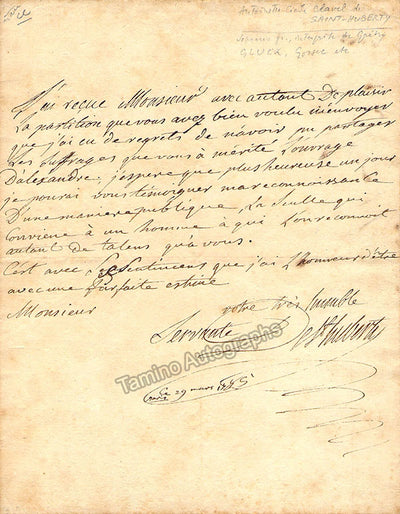 Antoinette-Cécile Clavel de
SAINT-HUBERTY
GLUCK, Gossec etc
J'ai reçue Monsieur avec autant De plaisir
la partition que vous avez bien voulu m'envoyer
que j'ai eu de regrets de n'avoir pu partager
Les suffrages que vous a mérité L'ouvrage
D'alexandre. j'espere que plus heureuse un jour
je pourai vous témoigner ma reconnoissance
D'une maniere publique, La seulle qui
Convient à un homme à qui L'on reconnoit
autant de talens qu'à vous.
C'est avec Ses Sentimens que j'ai L'honneur d'être
avec une Parfaite estime
Monsieur
votre très humble
Servante
St huberty
Tamino Autographs
29 mars